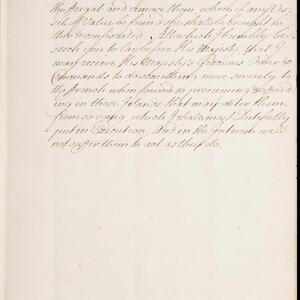 and remove them, where if any Ves-
sell of Value be found she shall be brought in
there & confiscated. All which I humbly be-
seech you to lay before His Majesty, that I
may receive His Majesty's Gracious Order &
Commands to do something more severely to
the french when found so presuming &
ing in those Islands that may deter them
from so doing, which I shall most Dutifully
put in Execution, and in the interim will
not suffer them to act as they do.